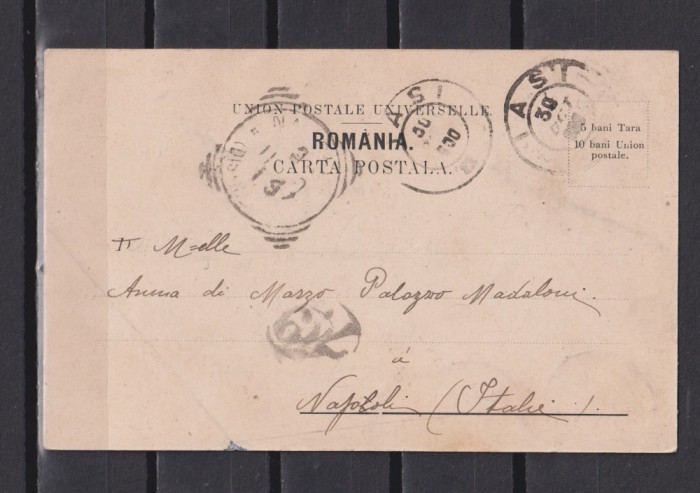 UNION POSTALE UNIVERSELLE.
ROMÂNIA.
CARTA POSTALA.
IASI
30
IASI
30
5 bani Tara
10 bani Union
postale.
Melle
Anna di Marzo Palazzo Madaloni.
à
Napoli (Italie).